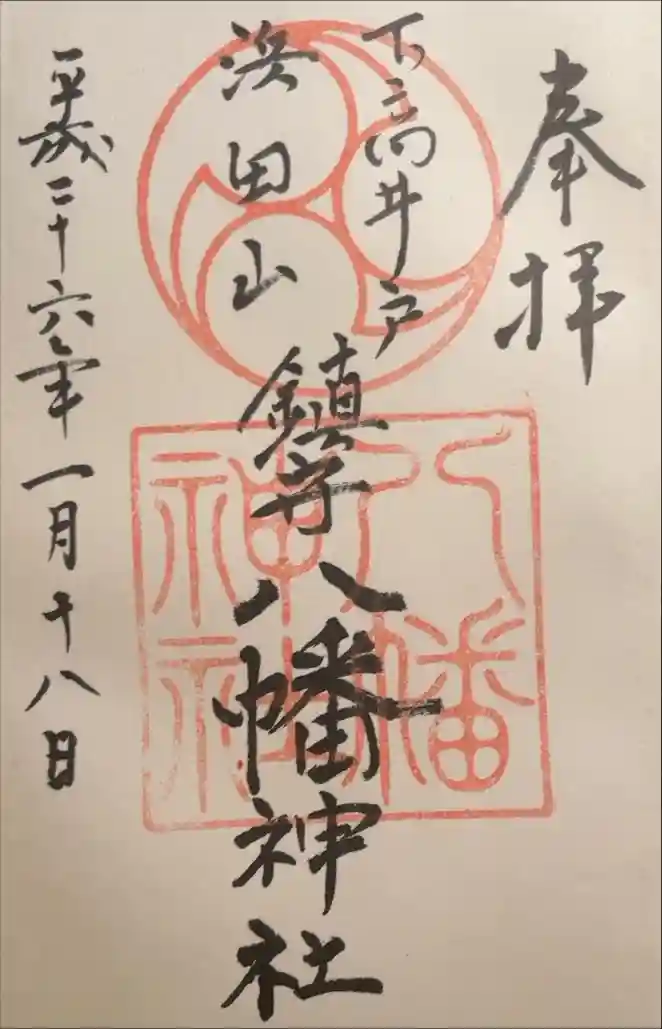 奉拝
下高井戸
浜田山
鎮守八幡神社
平成二十六年一月十八日
八幡
神社